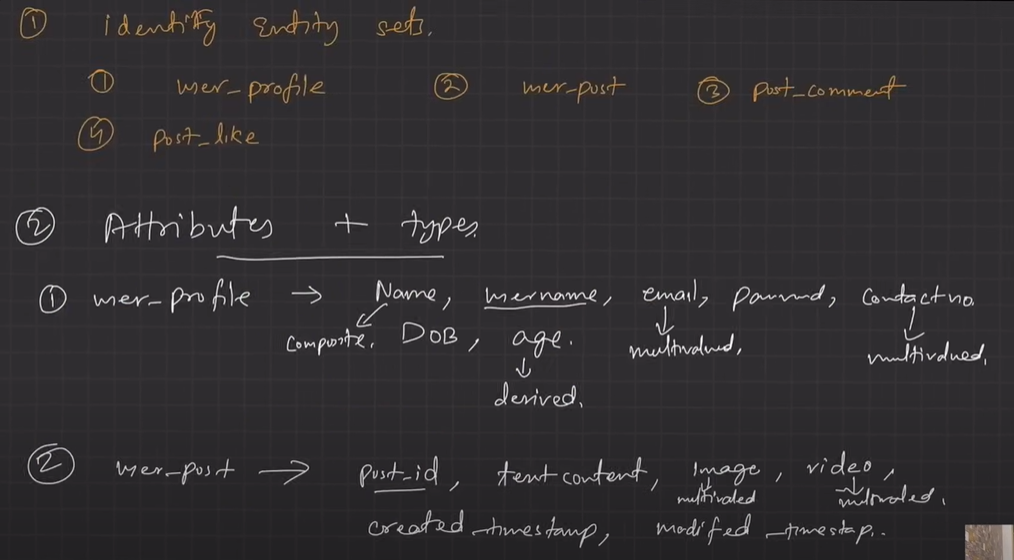 ① identify Entity sets.
① user_profile ② user_post ③ post_comment
④ post_like
② Attributes + types
① user_profile → Name, username, email, password, contact no.
composite. DOB, age. multivalued, multivalued,
derived.
② user_post → post_id, text content, Image, video,
multivalued multivalued.
created_timestamp, modified_timestap.